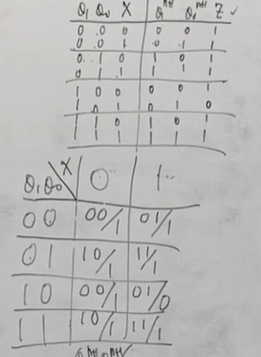 Q₁ Q₀ X Q₁ⁿ⁺¹ Q₀ⁿ⁺¹ Z
0 0 0 0 0 1
0 0 1 0 1 1
0 1 0 1 0 1
0 1 1 1 1 1
1 0 0 0 0 1
1 0 1 0 1 0
1 1 0 1 0 1
1 1 1 1 1 1
Q₁Q₀ X 0 1
00 00/1 01/1
01 10/1 11/1
10 00/1 01/0
11 10/1 11/1